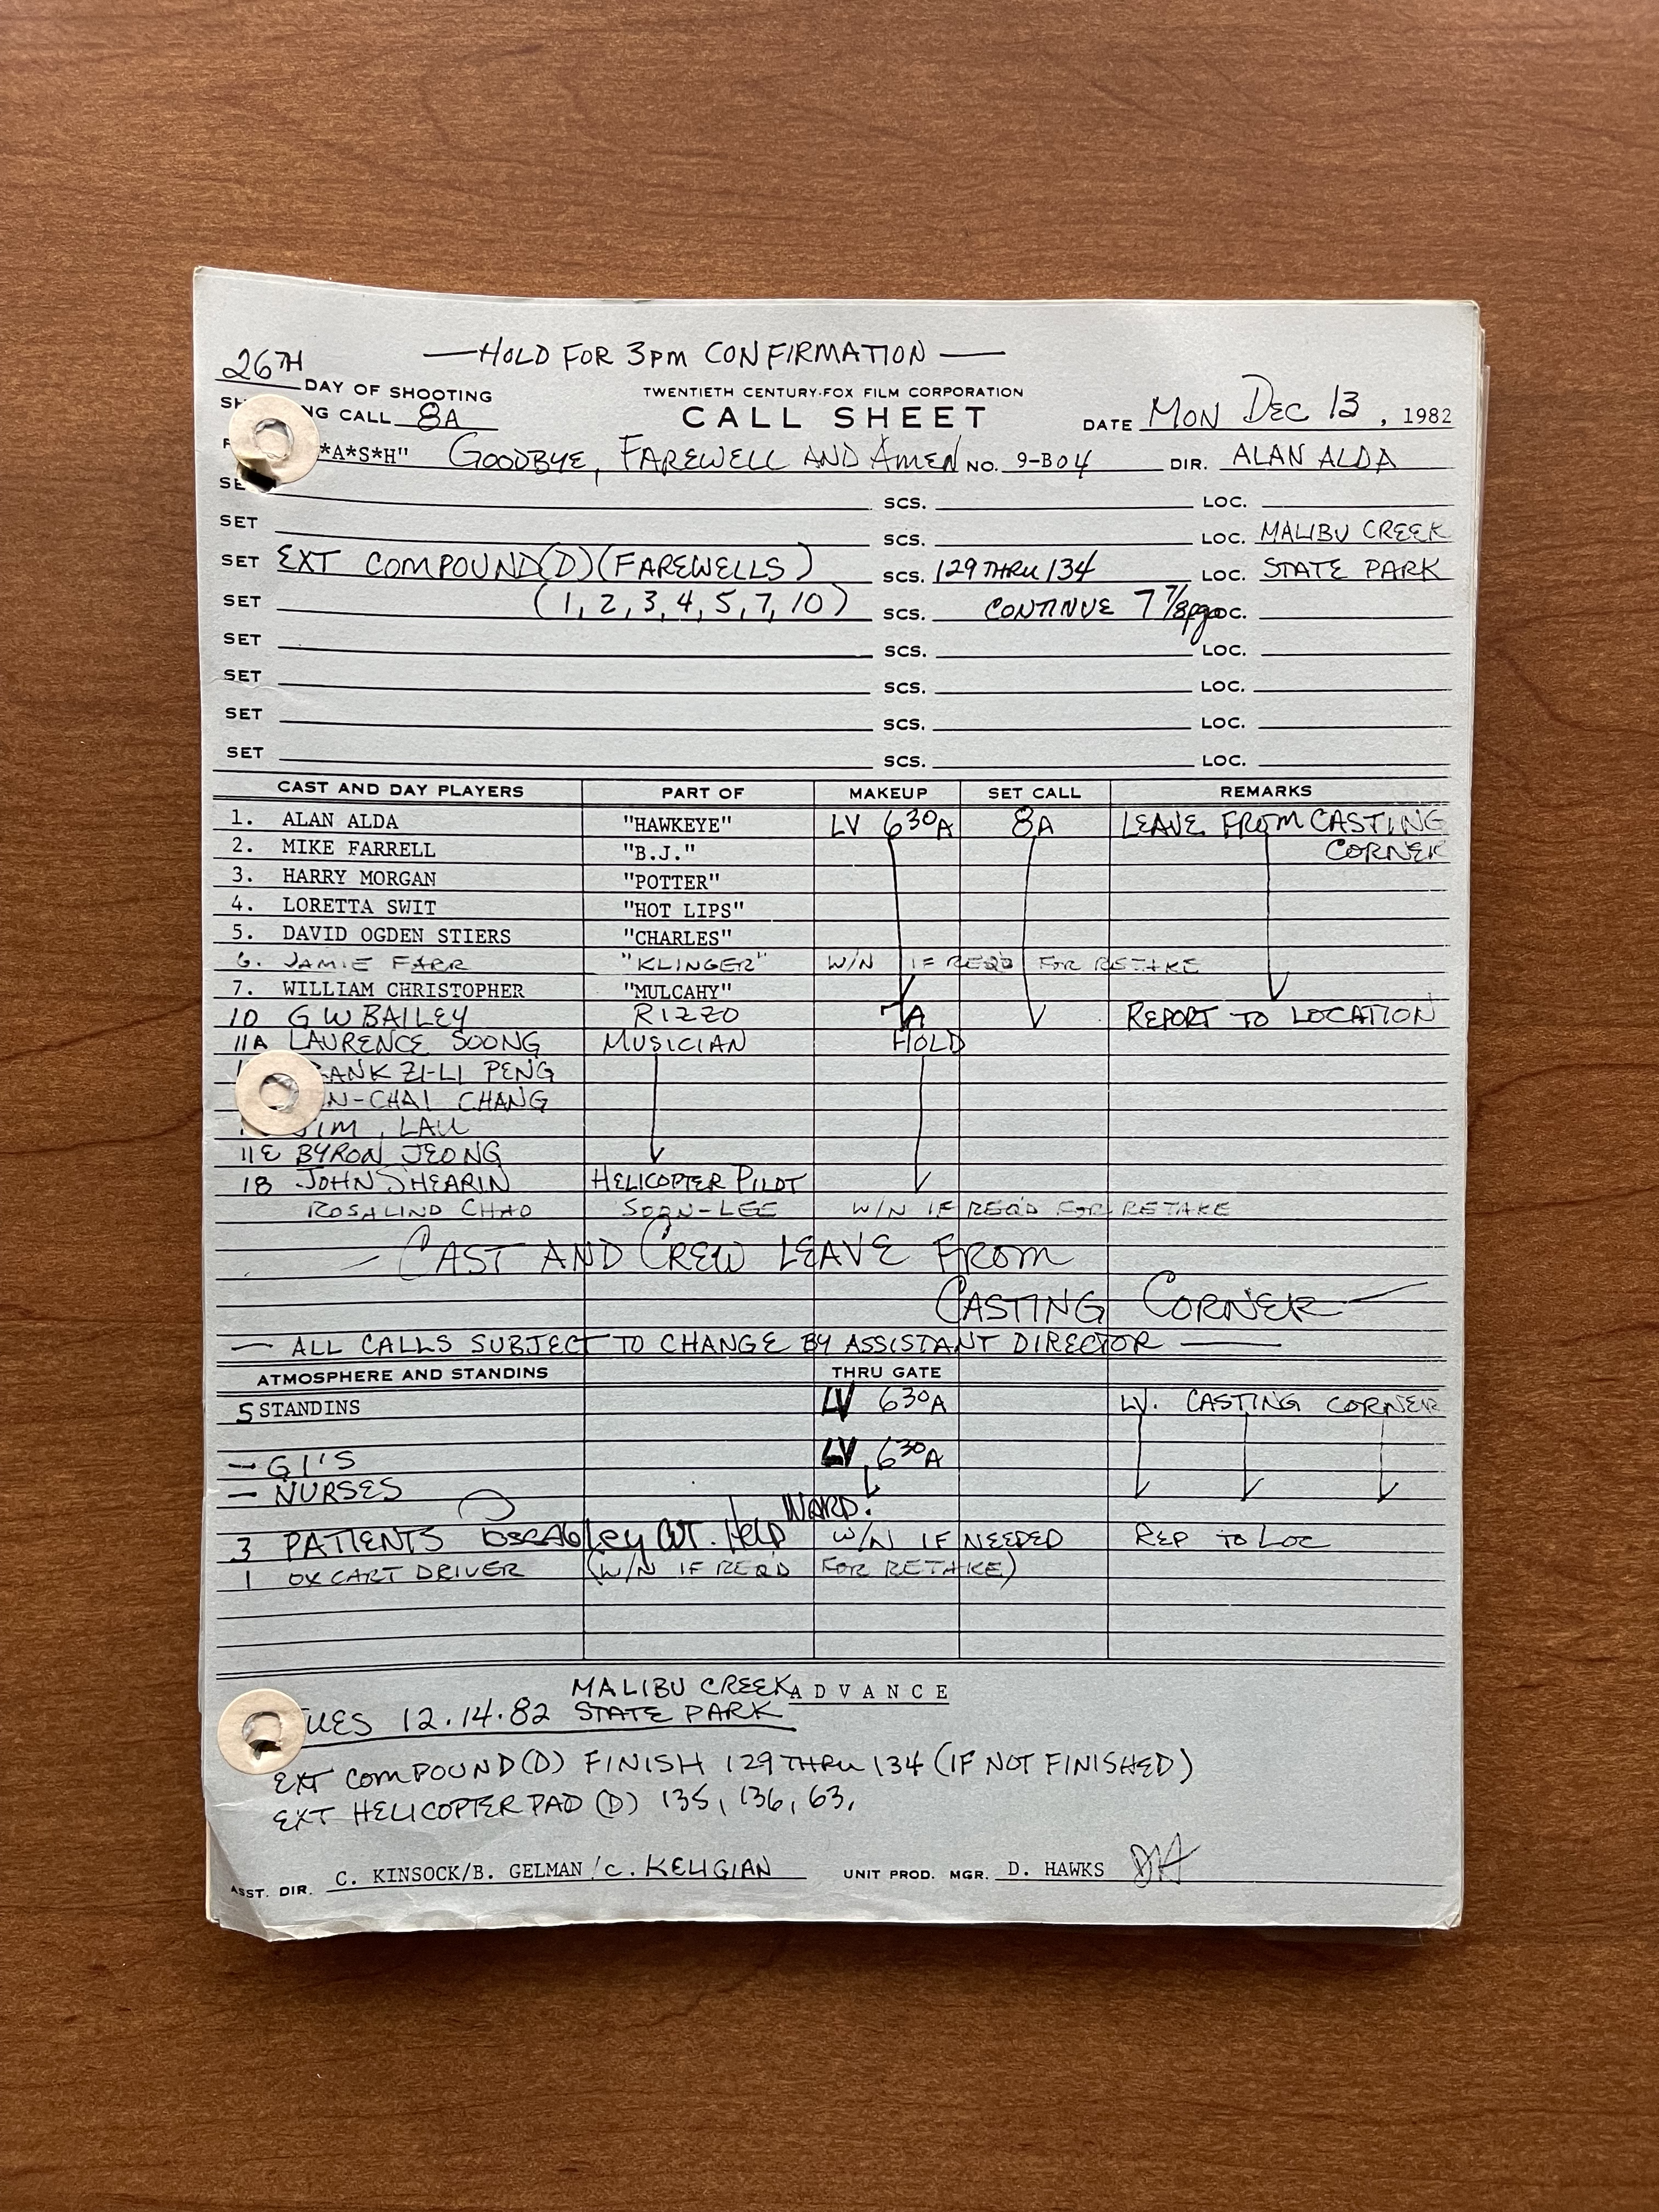 —HOLD FOR 3PM CONFIRMATION—
26TH DAY OF SHOOTING
TWENTIETH CENTURY-FOX FILM CORPORATION
CALL 8A
CALL SHEET
DATE MON DEC 13, 1982
*A*S*H" GOODBYE, FAREWELL AND AMEN NO. 9-B04 DIR. ALAN ALDA
SCS. LOC.
SET SCS. LOC. MALIBU CREEK
SET EXT COMPOUND(D)(FAREWELLS) SCS. 129 THRU 134 LOC. STATE PARK
SET (1, 2, 3, 4, 5, 7, 10) SCS. CONTINUE 7 7/8pgs
SET SCS. LOC.
SET SCS. LOC.
SET SCS. LOC.
SET SCS. LOC.
CAST AND DAY PLAYERS PART OF MAKEUP SET CALL REMARKS
1. ALAN ALDA "HAWKEYE" LV 630A 8A LEAVE FROM CASTING
2. MIKE FARRELL "B.J." CORNER
3. HARRY MORGAN "POTTER"
4. LORETTA SWIT "HOT LIPS"
5. DAVID OGDEN STIERS "CHARLES"
6. JAMIE FARR "KLINGER" W/N IF REQ'D FOR RETAKE
7. WILLIAM CHRISTOPHER "MULCAHY"
10 G W BAILEY RIZZO 7A REPORT TO LOCATION
11A LAURENCE SOONG MUSICIAN HOLD
ZI-LI PENG
CHANG
JIM LAU
11E BYRON JEONG
18 JOHN SHEARIN HELICOPTER PILOT
ROSALIND CHAO SOON-LEE W/N IF REQ'D FOR RETAKE
— CAST AND CREW LEAVE FROM
CASTING CORNER —
— ALL CALLS SUBJECT TO CHANGE BY ASSISTANT DIRECTOR —
ATMOSPHERE AND STANDINS THRU GATE
5 STANDINS LV 630A LV. CASTING CORNER
— GI'S LV 630A
— NURSES
WARD.
3 PATIENTS W/N IF NEEDED REP TO LOC
1 OX CART DRIVER (W/N IF REQ'D FOR RETAKE)
MALIBU CREEK ADVANCE
TUES 12.14.82 STATE PARK
EXT COMPOUND(D) FINISH 129 THRU 134 (IF NOT FINISHED)
EXT HELICOPTER PAD (D) 135, 136, 63,
ASST. DIR. C. KINSOCK/B. GELMAN/C. KELIGIAN UNIT PROD. MGR. D. HAWKS DH